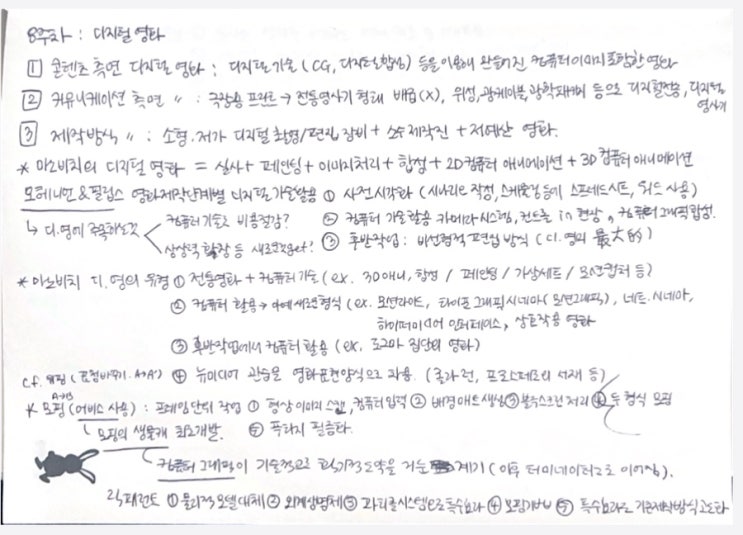 8주차 : 디지털 영화
1 콘텐츠 측면 디지털 영화 : 디지털기술 (CG, 디지털합성) 등을 이용해 만들어진 컴퓨터이미지 포함한 영화
2 커뮤니케이션 측면 〃 : 극장용 프린트 → 전통영사기 형태 배급(X), 위성, 광케이블, 광학 등으로 디지털전송, 디지털 영사기
3 제작방식 〃 : 소형·저가 디지털 촬영/편집 장비 + 소수제작진 + 저예산 영화.
* 마노비치의 디지털 영화 = 실사 + 페인팅 + 이미지처리 + 합성 + 2D컴퓨터 애니메이션 + 3D 컴퓨터 애니메이션
오해니언 & 필립스 영화제작단계별 디지털기술활용 ① 사전시각화 (시나리오 작성, 스케줄링 등에 스프레드시트, 워드 사용)
↳ 디.영에 주목하는것 컴퓨터기술로 비용절감? ② 컴퓨터 기술활용 카메라시스템, 컨트롤 in 현상, 컴퓨터그래픽합성.
상상력 확장 등 새로운 ③ 후반작업 : 비선형적편집 방식 (디.영의 最大的)
* 마노비치 디.영의 유형 ① 전통영화 + 컴퓨터기술 (ex. 3D애니, 합성 / 페인팅 / 가상세트 / 모션캡쳐 등)
② 컴퓨터 활용 → 아예 새로운형식 (ex. 모션라이드, 타이포그래픽시네마(모션그래픽), 네트.시네마,
하이퍼미디어 인터페이스, 상호작용 영화
③ 후반작업에서 컴퓨터 활용 (ex. 도그마 집단의 영화)
c.f. 워핑 (표정바꾸기. A→A') ④ 뉴미디어 관습을 영화표현양식으로 차용. (롤라런, 프로스페로의 서재 등)
A→B
* 모핑 (어비스 사용) : 프레임단위 작업 ① 형상이미지 스캔, 컴퓨터입력 ② 배경매트생성 ③ 블루스크린 처리 ④ 두 형식 모핑
모핑의 생물체 최초개발. ⑤ 
컴퓨터 그래픽이 기술적으로 획기적도약을 거둔 계기 (이후 터미네이터2로 이어짐).
① 물리적모델대체 ② 외계생명체 ③ 파티클시스템으로 특수효과 ④ 모핑기법 ⑤ 특수효과로 기존제작방식 고도화